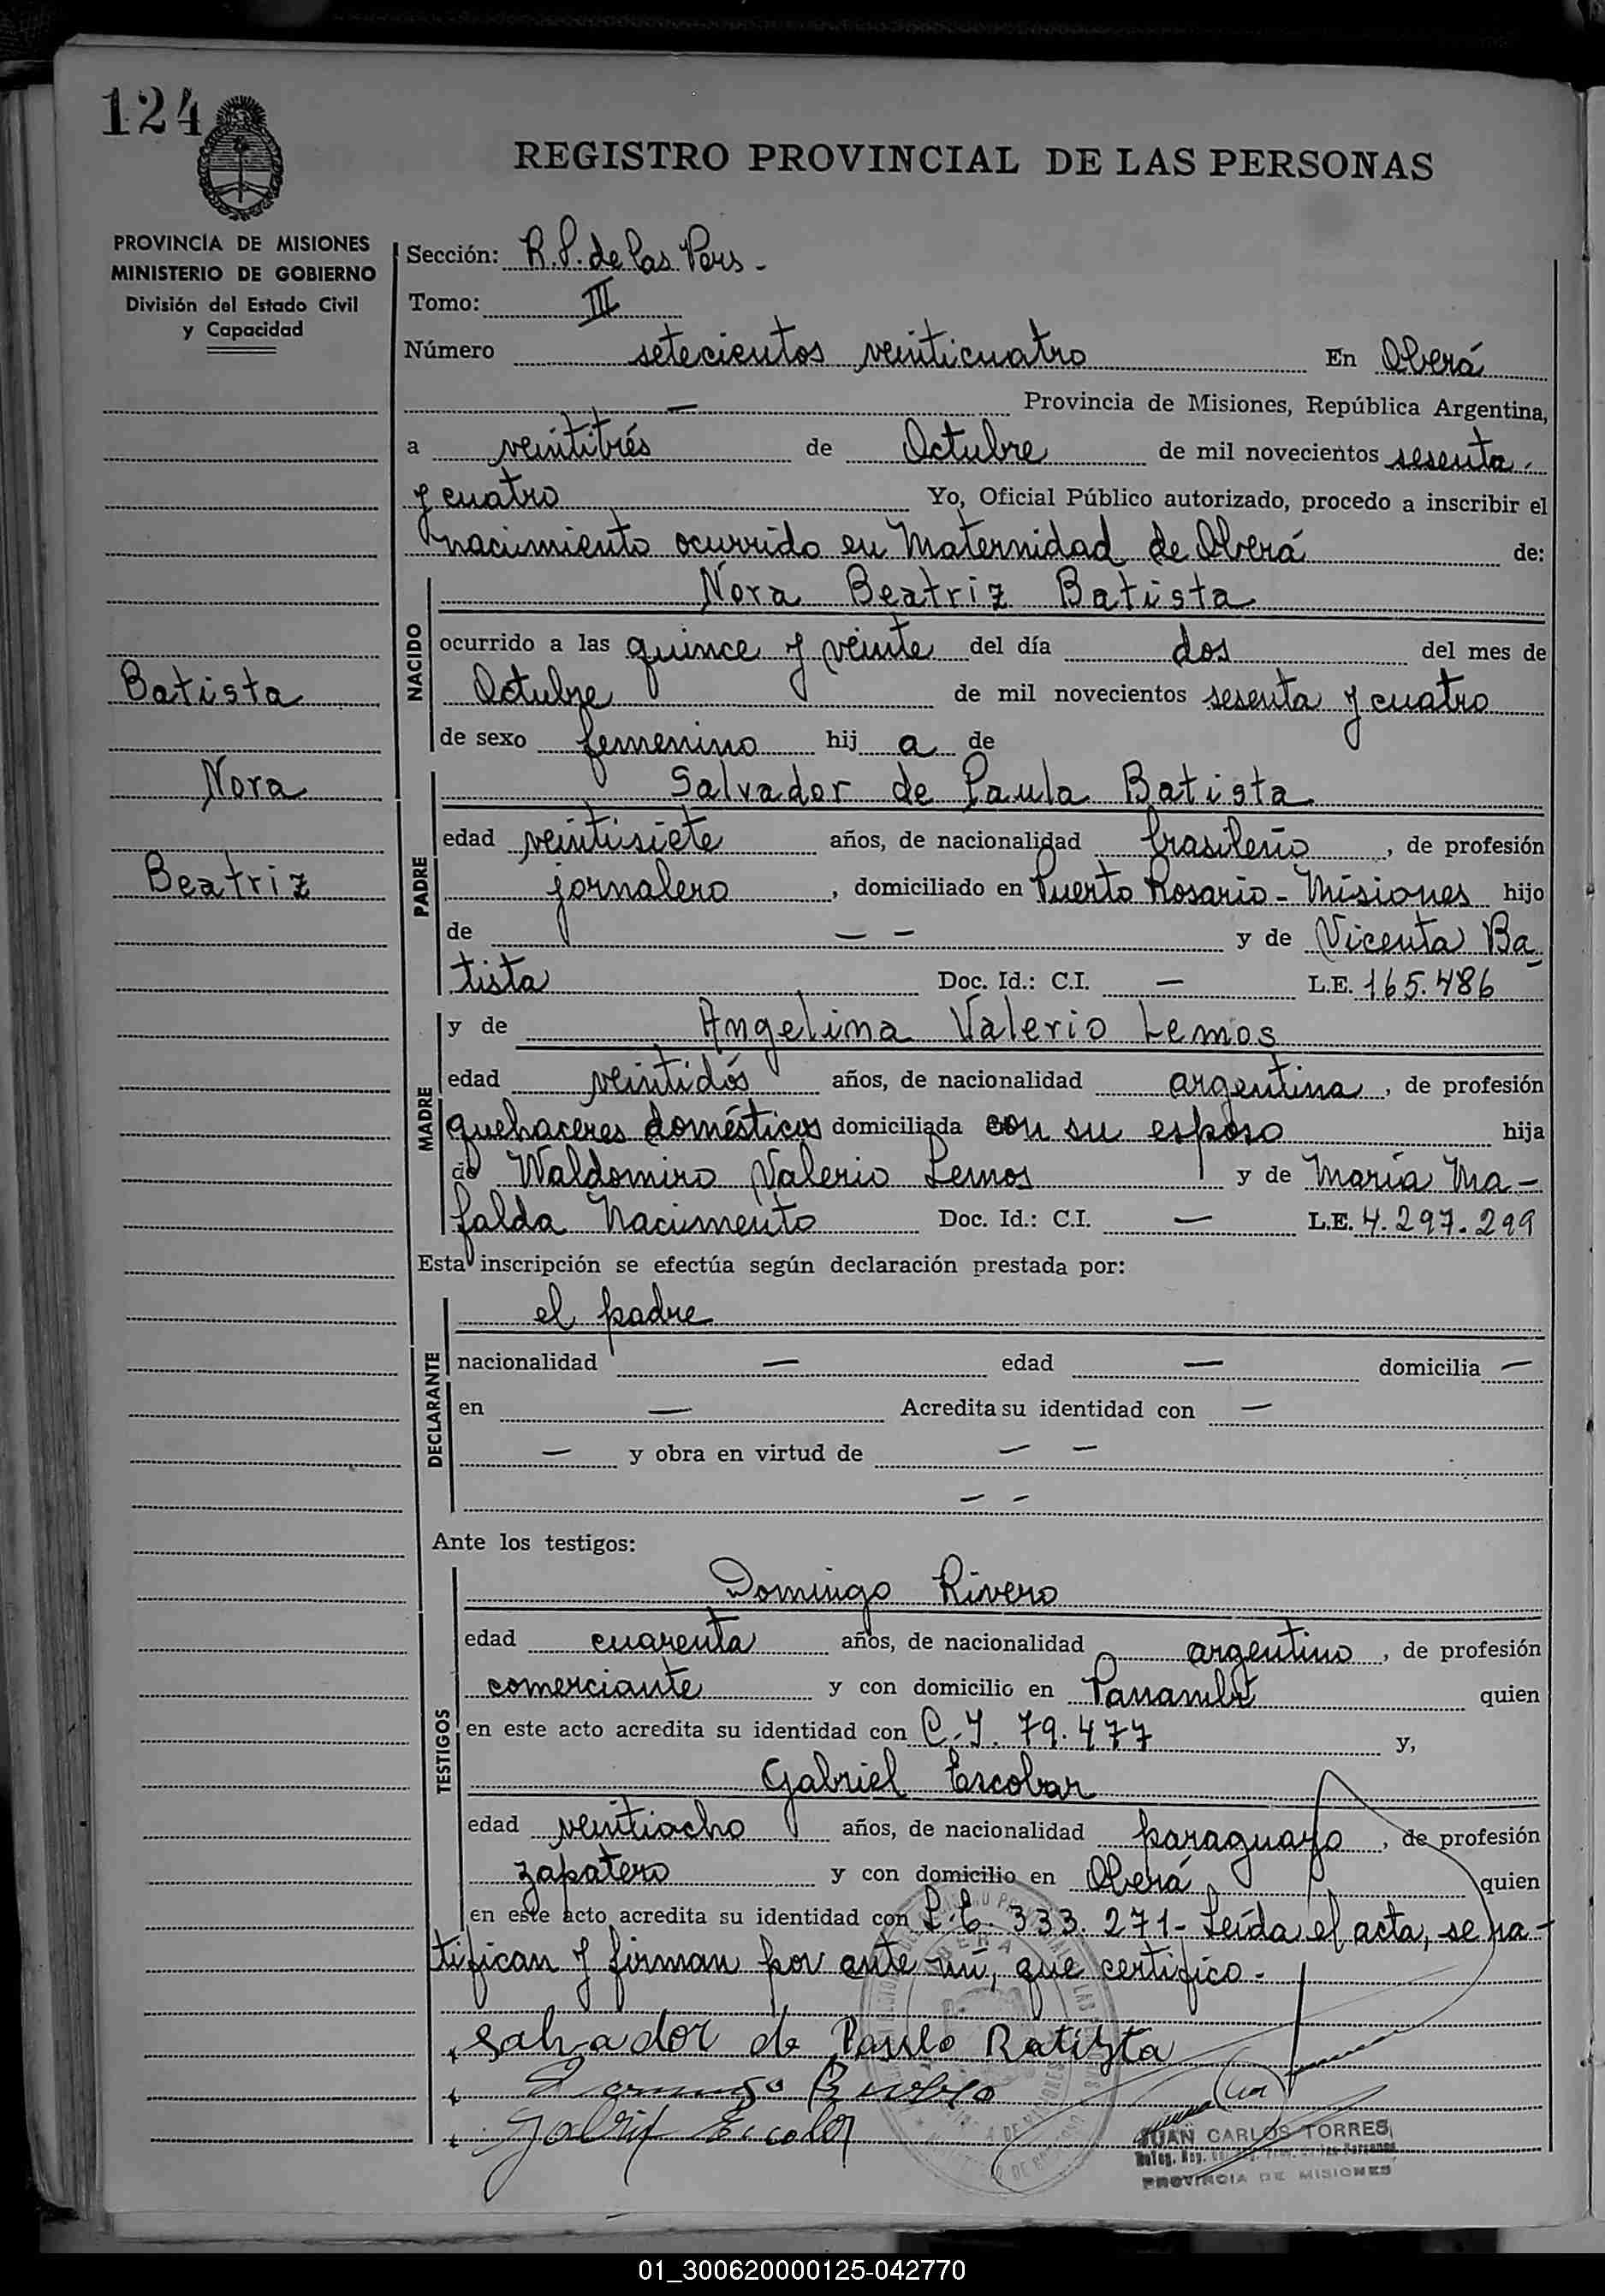 124
REGISTRO PROVINCIAL DE LAS PERSONAS
PROVINCIA DE MISIONES
MINISTERIO DE GOBIERNO
División del Estado Civil
y Capacidad
Batista
Nora
Beatriz
Sección: R.P. de las Pers -
Tomo: III
Número setecientos veinticuatro En Oberá
— Provincia de Misiones, República Argentina,
a veintitrés de Octubre de mil novecientos sesenta
y cuatro Yo, Oficial Público autorizado, procedo a inscribir el
nacimiento ocurrido en Maternidad de Oberá de:
NACIDO
Nora Beatriz Batista
ocurrido a las quince y veinte del día dos del mes de
Octubre de mil novecientos sesenta y cuatro
de sexo femenino hij a de
PADRE
Salvador de Paula Batista
edad veintisiete años, de nacionalidad brasileño, de profesión
jornalero, domiciliado en Puerto Rosario - Misiones hijo
de — — y de Vicenta Ba-
tista Doc. Id.: C.I. — L.E. 165.486
MADRE
y de Angelina Valerio Lemos
edad veintidós años, de nacionalidad argentina, de profesión
quehaceres domésticos domiciliada con su esposo hija
de Waldomiro Valerio Lemos y de María Ma-
falda Nacimento Doc. Id.: C.I. — L.E. 4.297.299
Esta inscripción se efectúa según declaración prestada por:
DECLARANTE
el padre
nacionalidad — edad — domicilia —
en — Acredita su identidad con —
— y obra en virtud de — —
— —
Ante los testigos:
TESTIGOS
Domingo Rivero
edad cuarenta años, de nacionalidad argentino, de profesión
comerciante y con domicilio en Panambí quien
en este acto acredita su identidad con C.I. 79.477 y,
Gabriel Escobar
edad veintiocho años, de nacionalidad paraguayo, de profesión
zapatero y con domicilio en Oberá quien
en este acto acredita su identidad con L.E. 333.271 - Leída el acta, se ra-
tifican y firman por ante mí, que certifico -
Salvador de Paulo Batista
Gabriel Escobar
JUAN CARLOS TORRES
PROVINCIA DE MISIONES
01_300620000125-042770